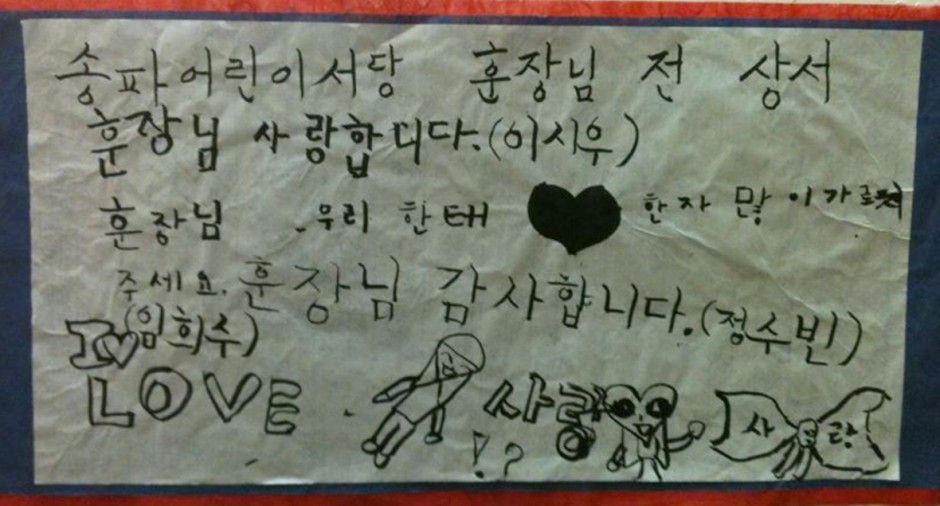 송파어린이서당 훈장님 전 상서
훈장님 사랑합니다.(이시우)
훈장님 우리 한태 ♥ 한자 많이가르쳐
주세요. 훈장님 감사합니다.(정수빈)
(임희수)
I♥
LOVE 사랑 사랑
!?